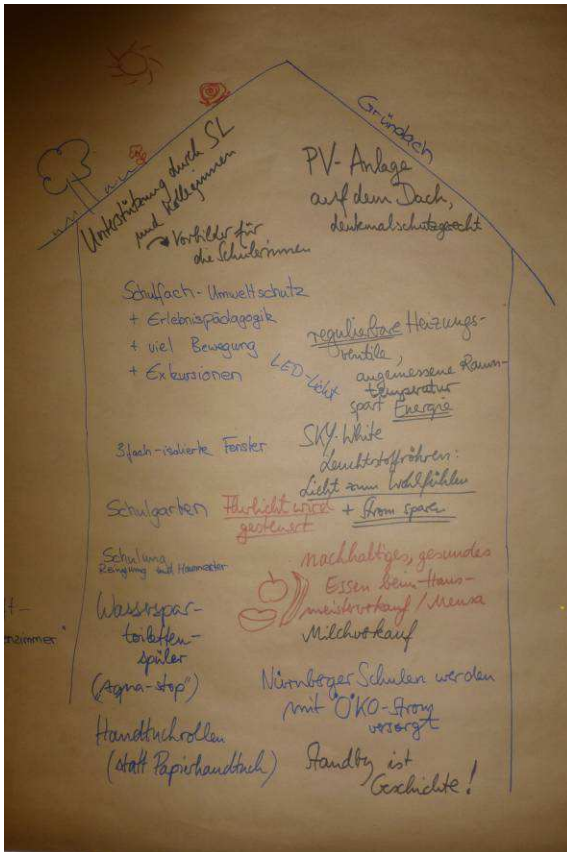 Gründach
Unterstützung durch SL
und Kolleginnen
→ Vorbilder für
die Schülerinnen
PV-Anlage
auf dem Dach,
denkmalschutzgerecht
Schulfach-Umweltschutz
+ Erlebnispädagogik
+ viel Bewegung
+ Exkursionen
LED-Licht
regulierbare Heizungs-
ventile,
angemessene Raum-
temperatur
spart Energie
3fach-isolierte Fenster
SKY-White
Leuchtstoffröhren:
Licht zum Wohlfühlen
+ Strom sparen
Schulgarten
wird
gesteuert
Schulung
Reinigung und Hausmeister
nachhaltiges, gesundes
Essen beim Haus-
meisterverkauf / Mensa
Milchverkauf
Wasserspar-
toiletten-
spüler
("Aqua-stop")
nzimmer"
Nürnberger Schulen werden
mit "ÖKO-Strom
versorgt
Handtuchrollen
(statt Papierhandtuch)
Standby ist
Geschichte!